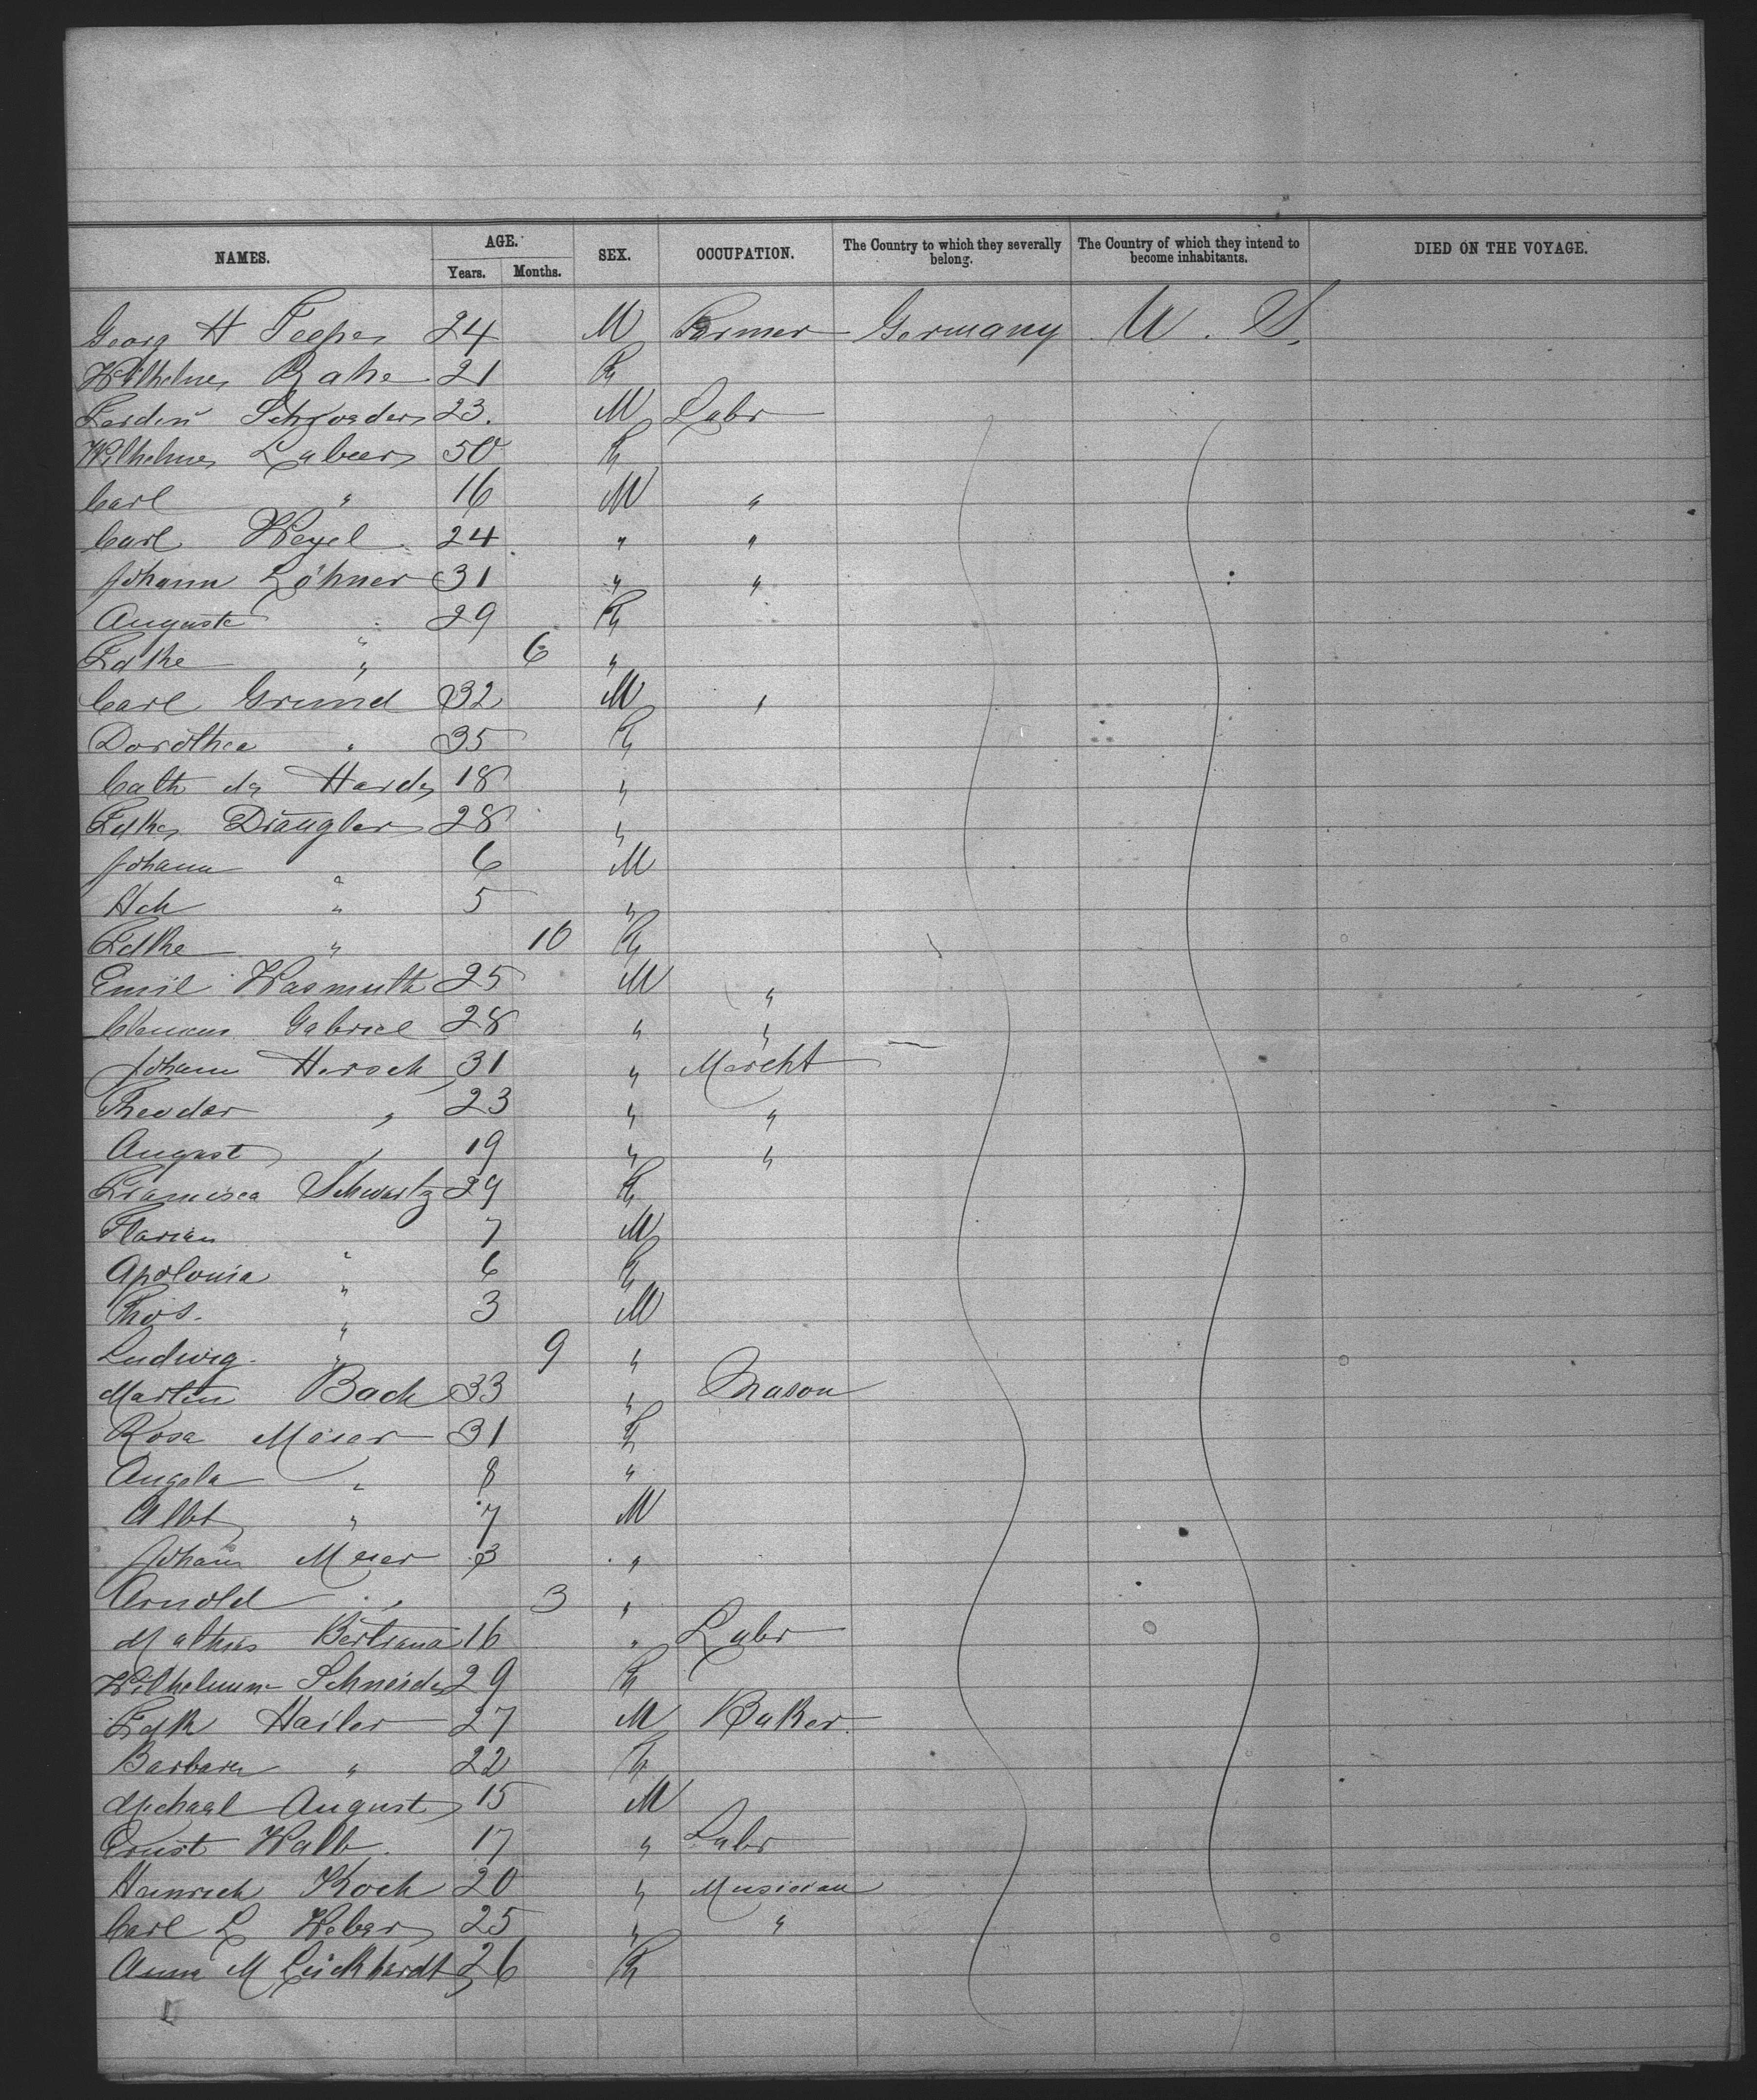 NAMES. AGE. SEX. OCCUPATION. The Country to which they severally belong. The Country of which they intend to become inhabitants. DIED ON THE VOYAGE.
Years. Months.
Georg H 24 M Farmer Germany U. S.
Rahe 21 F
Schroeder 23. M Labr
50 F
Carl " 16 M "
Carl Weyel 24 " "
Johann Löhner 31 " "
Auguste " 29 F
" 6 "
Carl Grund 32 M "
Dorothea " 35 F
Cath 18 "
28 "
Johann " 6 M
Hch " 5 "
" 10 F
Emil Wasmuth 25 M "
Gabriel 28 " "
Johann Hirsch 31 " Marcht
Theodor " 23 " "
August " 19 " "
Francisca Schwartz 29 F
Florian " 7 M
Apolonia " 6 F
Thos. " 3 M
Ludwig " 9 "
Martin Bach 33 " Mason
Rosa Meier 31 F
Angela " 8 "
Albt " 7 M
Johann Meier 3 "
Arnold " 3 "
Mathias 16 " Labr
Schneider 29 F
Hailer 27 M Baker.
Barbara " 22 F
Michael August 15 M
Ernst Walb 17 " Labr
Heinrich Koch 20 " Musician
Carl L Weber 25 " "
Anna M 26 F